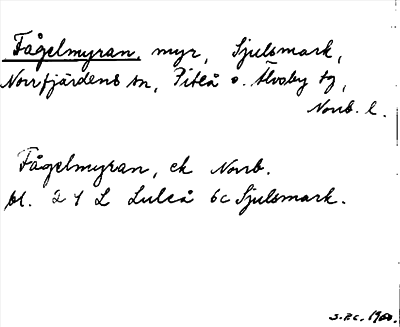 Fågelmyran, myr, Sjulsmark,
Norrfjärdens sn, Piteå o. Älvsby tg,
Norrb. l.
Fågelmyran, ek Norrb.
bl. 24 L Luleå 6c Sjulsmark.